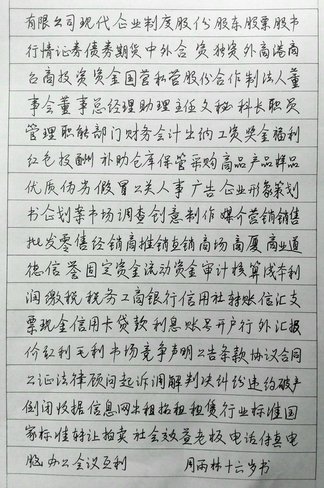 有限公司现代企业制度股份股东股票股市
行情证券债券期货中外合资独资外商港商
台商投资资金国营私营股份合作制法人董
事会董事总经理助理主任文秘科长职员
管理职能部门财务会计出纳工资奖金福利
红包报酬补助仓库保管采购商品产品样品
优质伪劣假冒公关人事广告企业形象策划
书企划案市场调查创意制作媒介营销销售
批发零售经销商推销直销商场商厦商业道
德信誉固定资金流动资金审计核算成本利
润缴税税务工商银行信用社转账信汇支
票现金信用卡贷款利息账号开户行外汇报
价红利毛利市场竞争声明公告条款协议合同
公证法律顾问起诉调解判决纠纷违约破产
倒闭收据信息网出租招租租赁行业标准国
家标准转让拍卖社会效益老板电话传真电
脑办公会议互利 周丙林十六岁书